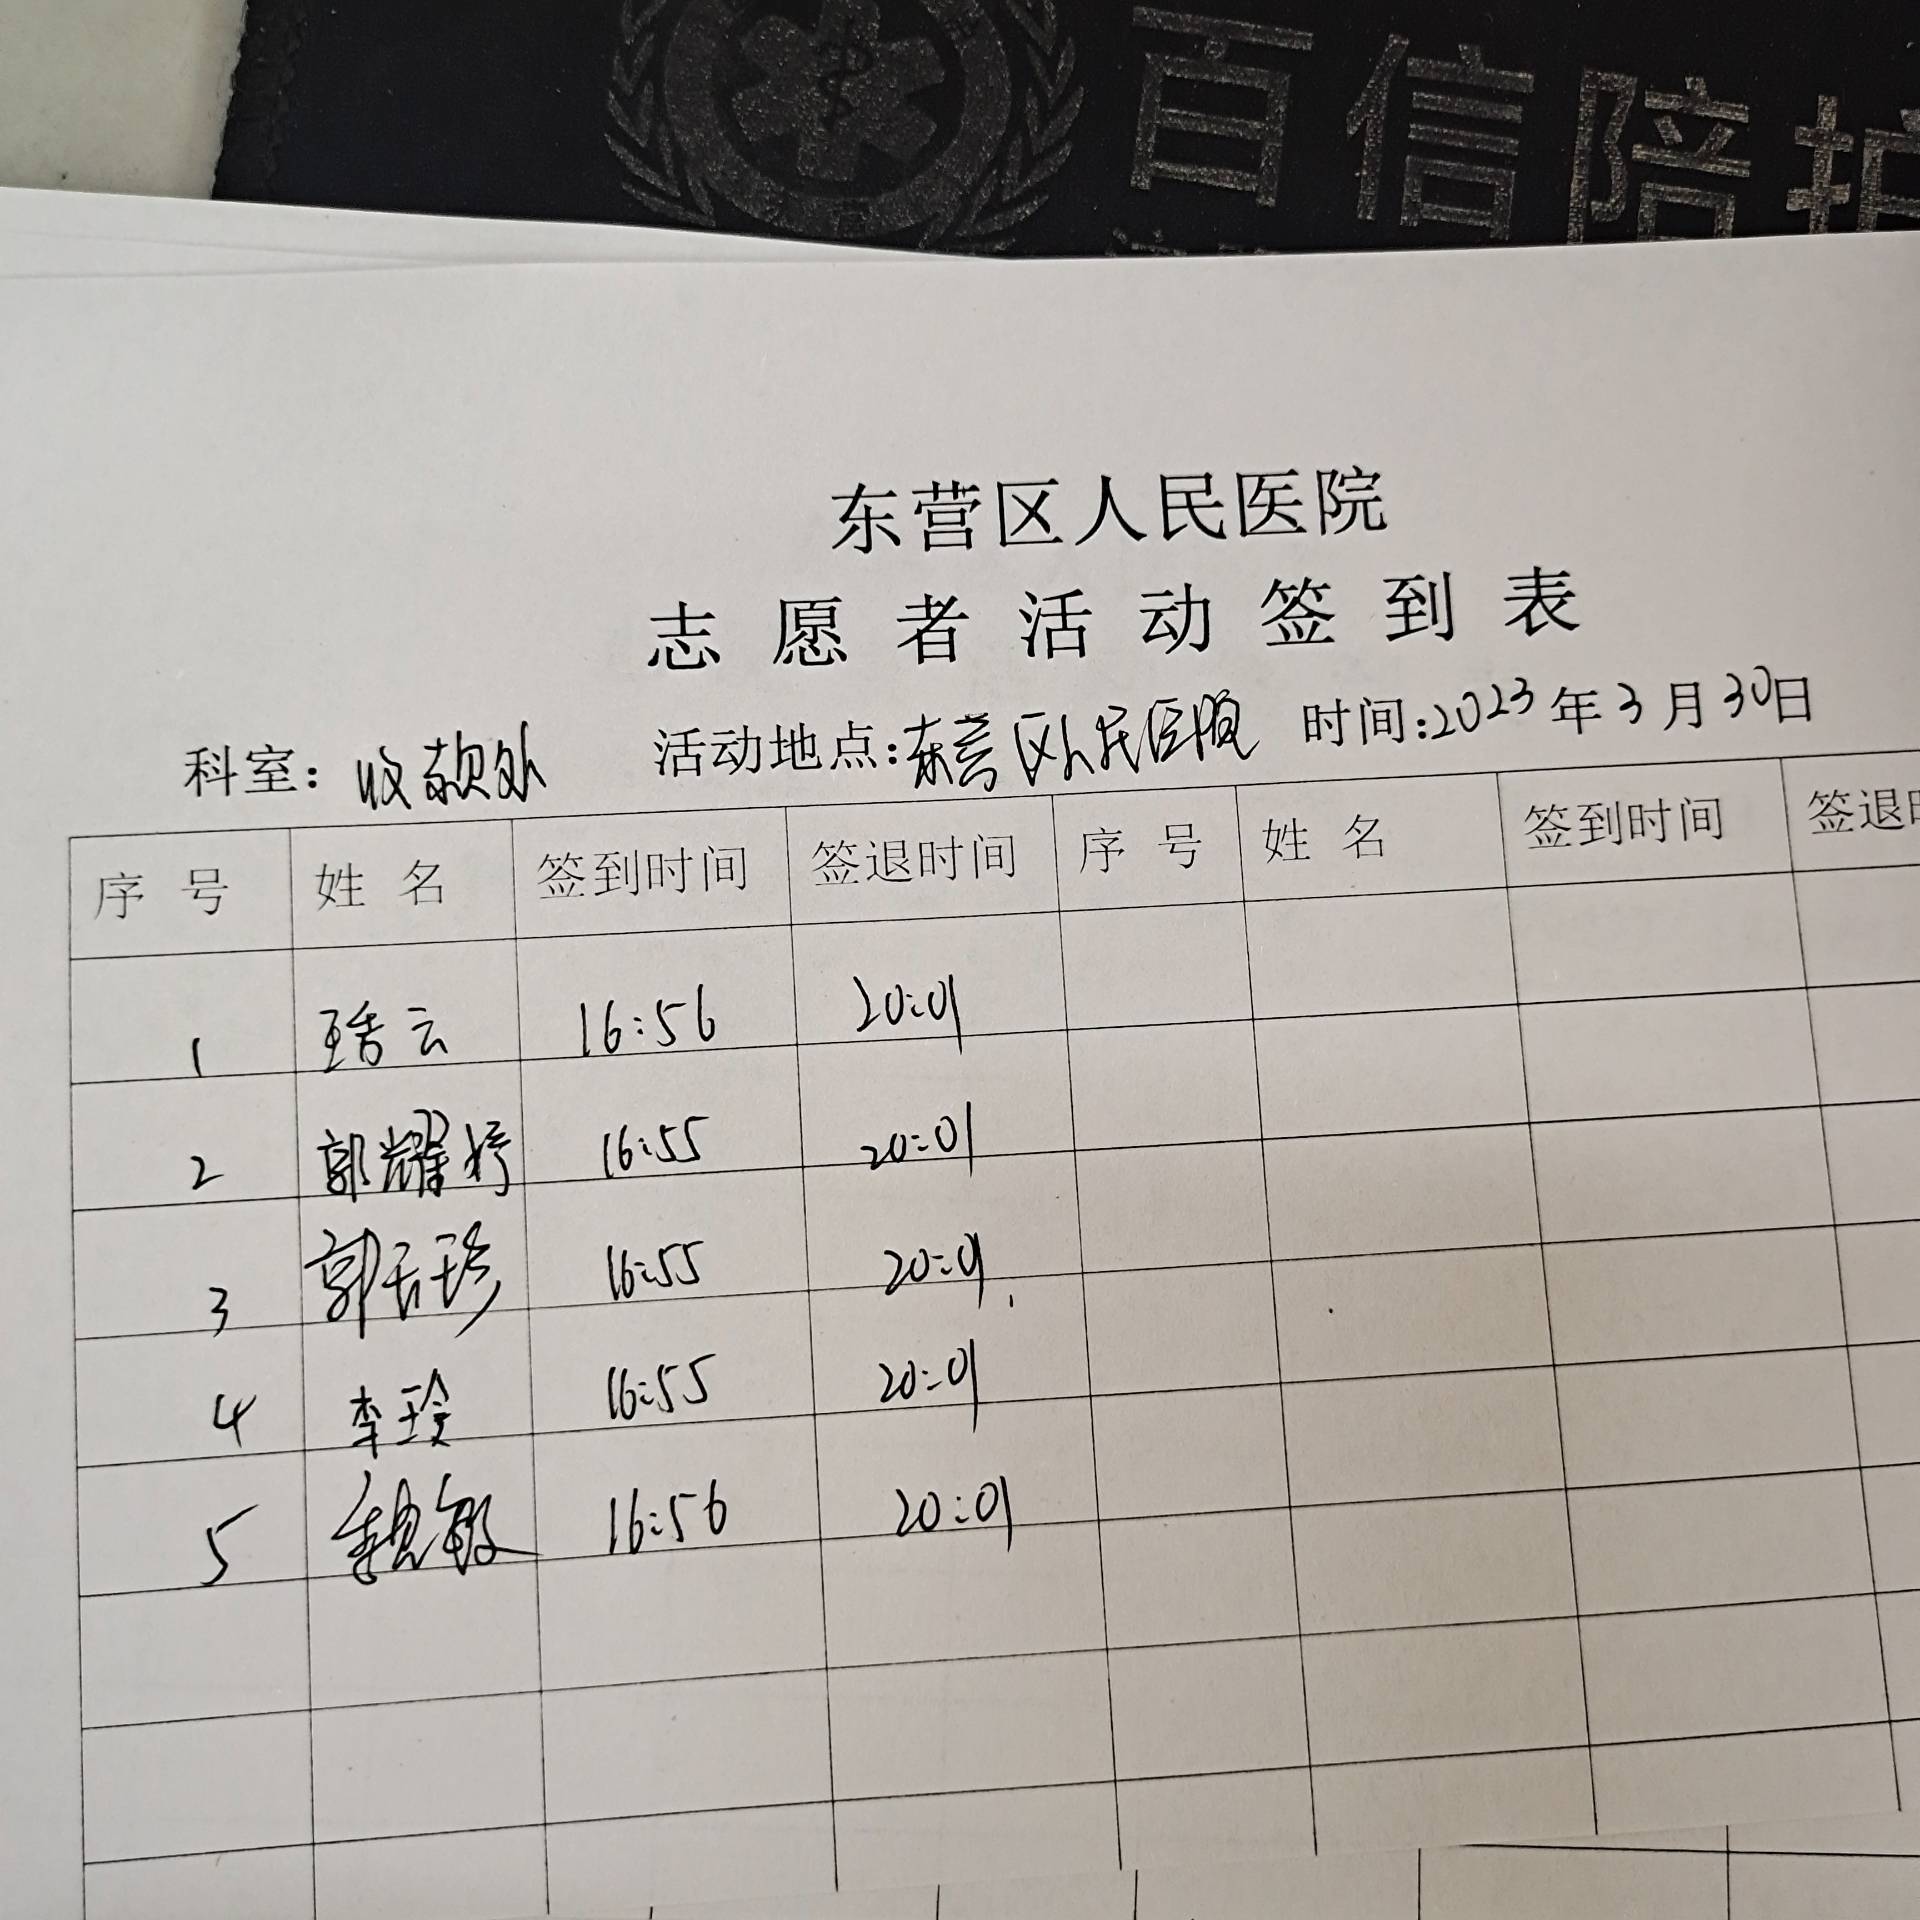 百信陪护
东营区人民医院
志愿者活动签到表
科室：收款处 活动地点：东营区人民医院 时间：2023年3月30日
序号 姓名 签到时间 签退时间 序号 姓名 签到时间 签退时
1 云 16:56 20:01
2 郭耀婷 16:55 20:01
3 郭云珍 16:55 20:01
4 李玲 16:55 20:01
5 魏敏 16:56 20:01